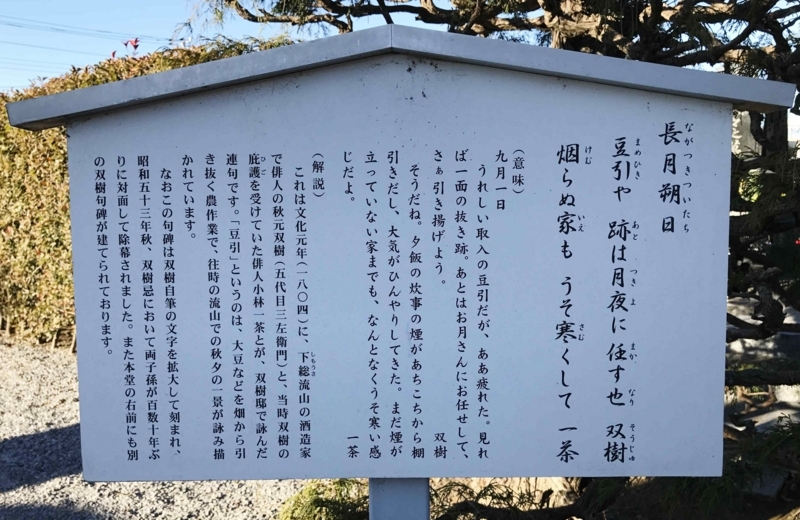 長月朔日
豆引や 跡は月夜に 任す也 双樹
烟らぬ家も うそ寒くして 一茶
(意味)
九月一日
うれしい取入の豆引だが、ああ疲れた。見れ
ば一面の抜き跡。あとはお月さんにお任せして、
さぁ引き揚げよう。 双樹
そうだね。夕飯の炊事の煙があちこちから棚
引きだし、大気がひんやりしてきた。まだ煙が
立っていない家までも、なんとなくうそ寒い感
じだよ。 一茶
(解説)
これは文化元年(一八〇四)に、下総流山の酒造家
で俳人の秋元双樹(五代目三左衛門)と、当時双樹の
庇護を受けていた俳人小林一茶とが、双樹邸で詠んだ
連句です。「豆引」というのは、大豆などを畑から引
き抜く農作業で、往時の流山での秋夕の一景が詠み描
かれています。
なおこの句碑は双樹自筆の文字を拡大して刻まれ、
昭和五十三年秋、双樹忌において両子孫が百数十年ぶ
りに対面して除幕されました。また本堂の右前にも別
の双樹句碑が建てられております。